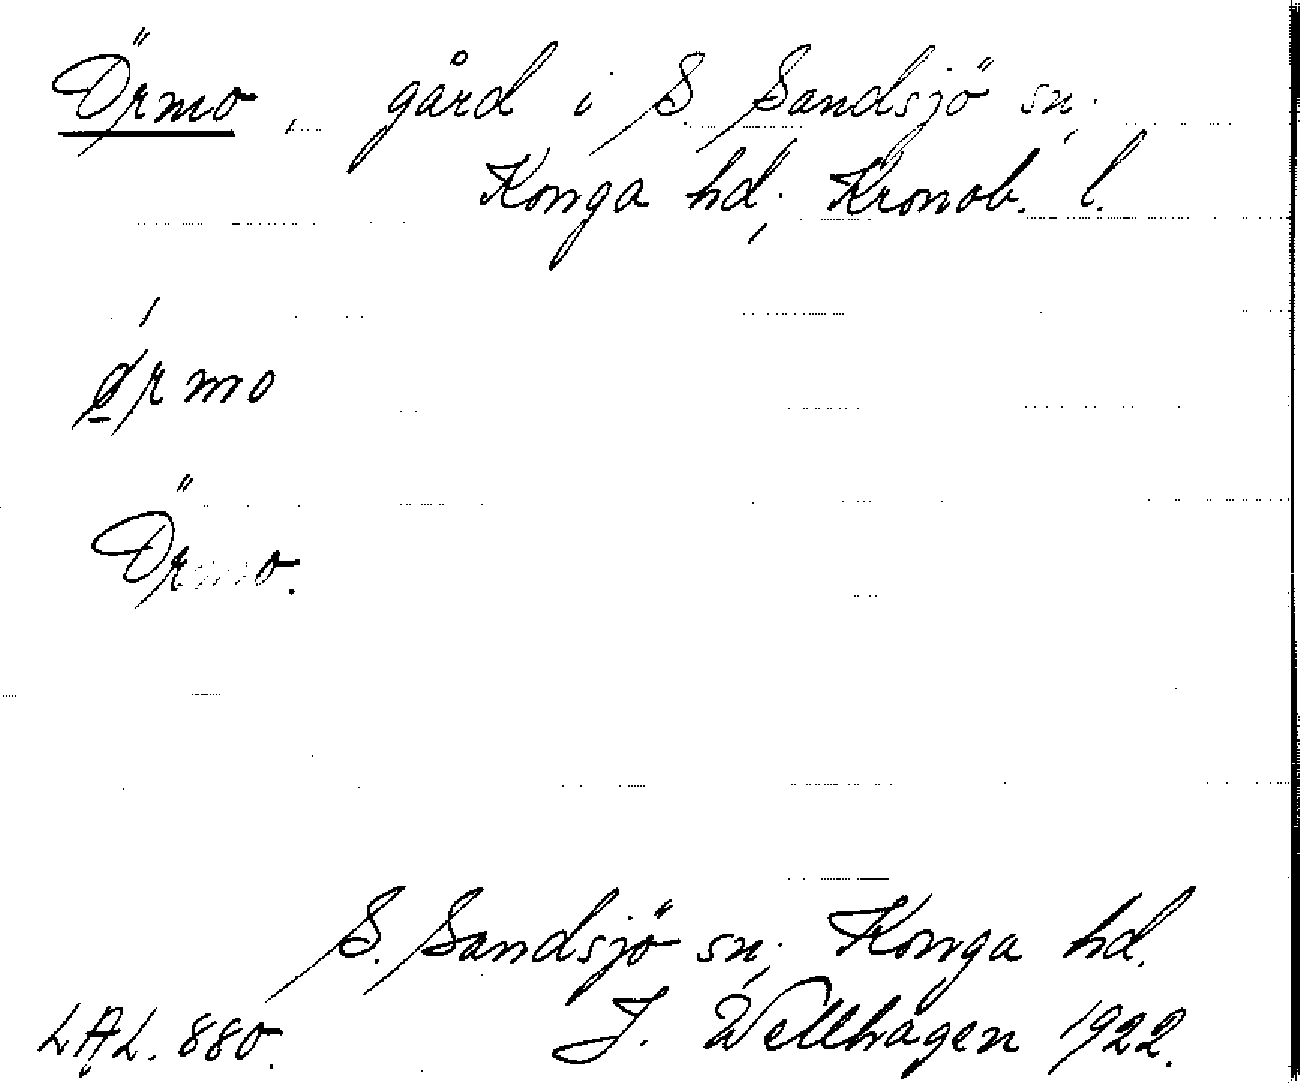 Örmo, gård i S. Sandsjö sn.,
Konga hd., Kronob. l.
ǿrmo
Örmo.
S. Sandsjö sn., Konga hd.
LAL. 880. J. Wellhagen 1922.